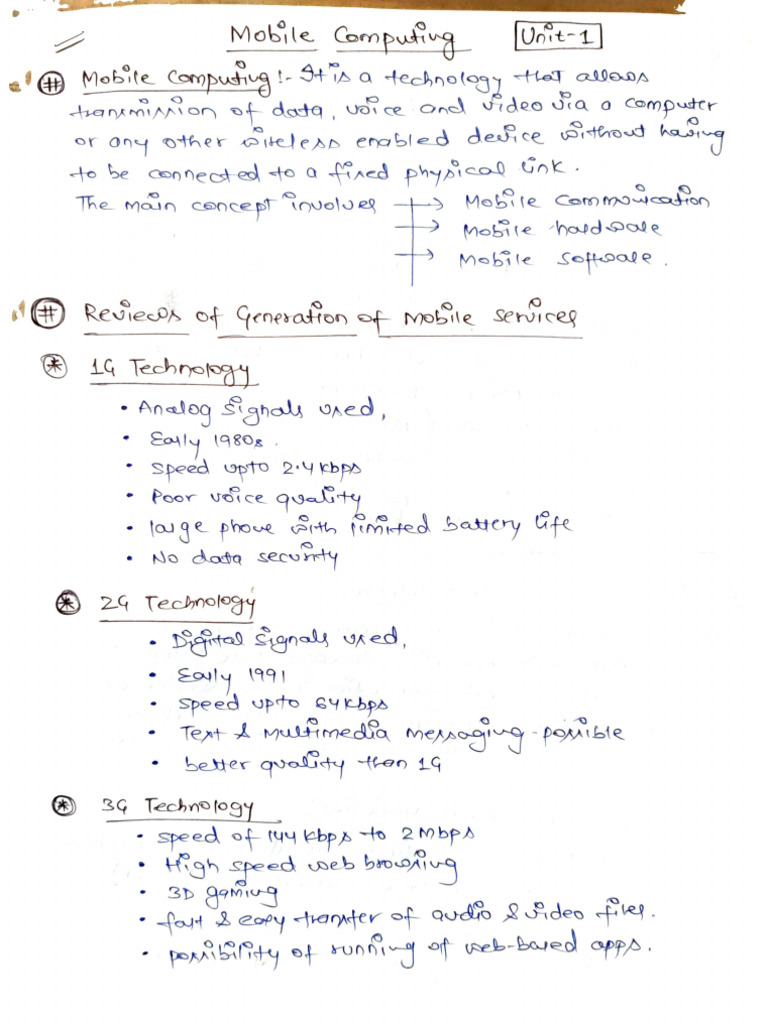 Mobile Computing Unit-1
# Mobile Computing :- It is a technology that allows
transmission of data, voice and video via a computer
or any other wireless enabled device without having
to be connected to a fixed physical link.
The main concept involves → Mobile Communication
→ Mobile hardware
→ Mobile software.
# Reviews of Generation of Mobile services
* 1G Technology
• Analog signals used,
• Early 1980s.
• speed upto 2.4 kbps
• Poor voice quality
• large phone with limited battery life
• No data security
* 2G Technology
• Digital signals used,
• Early 1991
• speed upto 64 kbps
• Text & Multimedia messaging possible
• better quality than 1G
* 3G Technology
• speed of 144 kbps to 2 Mbps
• High speed web browsing
• 3D gaming
• fast & easy transfer of audio & video files.
• possibility of running of web-based apps.